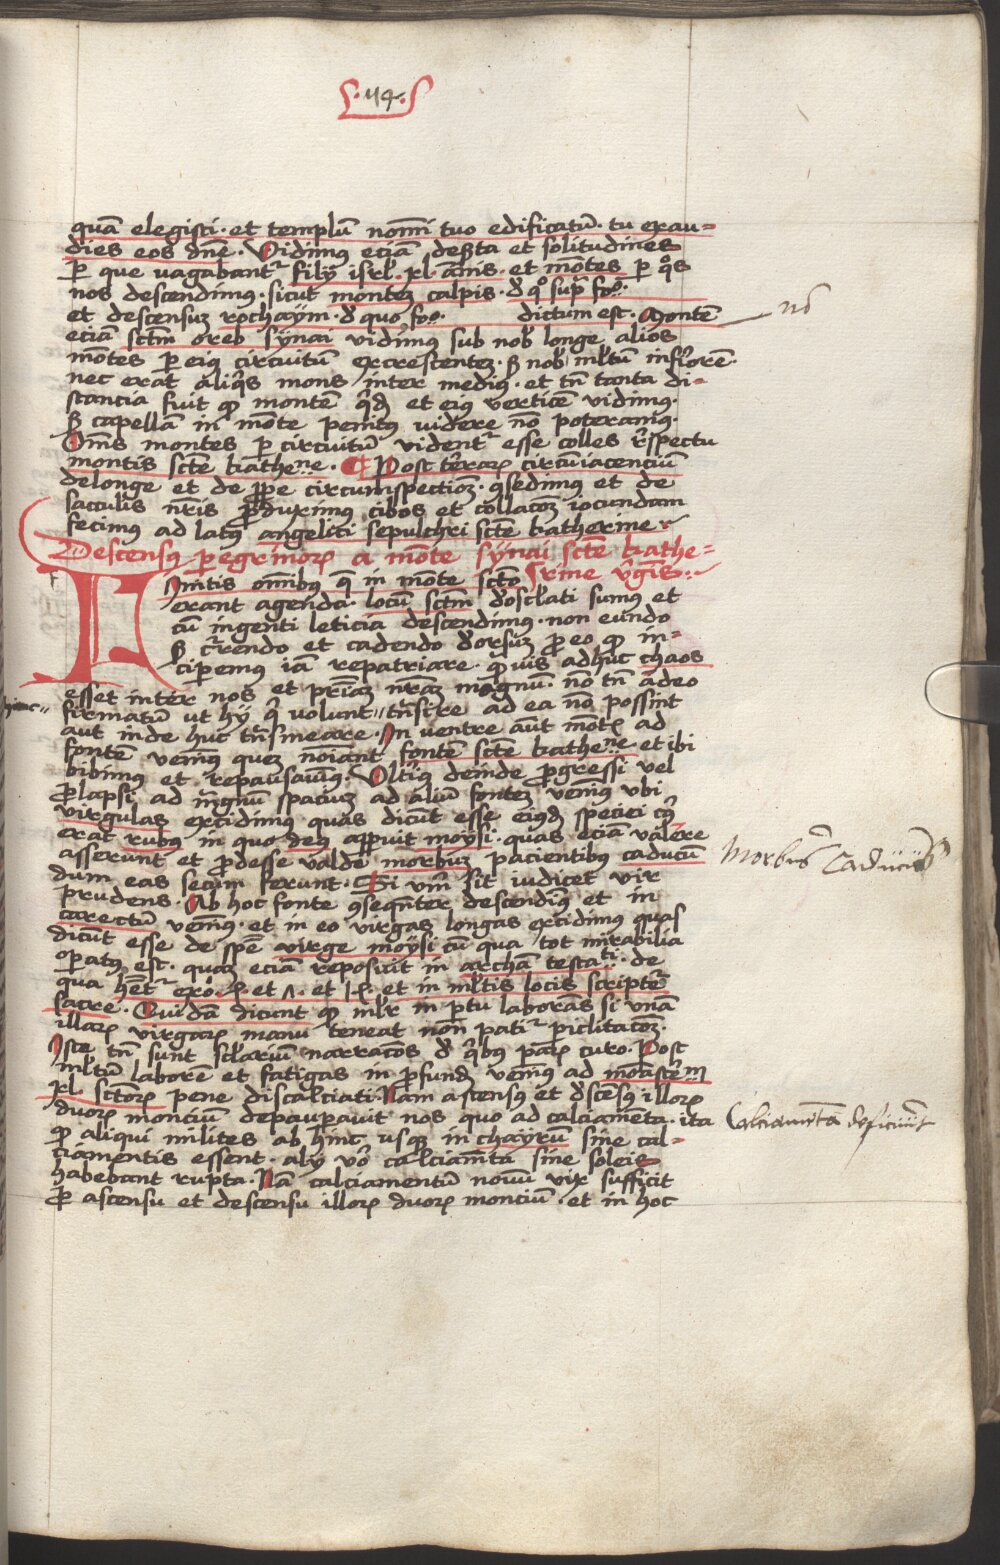 ·114·
quā elegisti · et templū nomini tuo edificatū · tu exau=
dies eos dn̄e · Vidimus eciā des̄ta et solitudines
ꝑ que vagabantᷣ filij isrl̄ · xl · annis · et mōtes ꝑ qͦs
nos descendimus · sicut montem calpis · de qͦ sup̄ fo ·
et descensum rochaym · de quo fo · dictum est · Montē
eciā sctm̄ oreb synai vidimus sub nob̄ longe alios
mōtes ꝑ eius circuitū excrescentem · s̄ nob̄ ml̄tum inferiorē ·
nec erat aliqͥs mons inter medius · et tn̄ tanta di=
stancia fuit ꝙ montē qͥdē et eius verticē vidimus ·
s̄ capellā in mōte penitus videre nō poteramus ·
Om̄s montes ꝑ circuitū videntᷣ esse colles respectu
montis scte katherine · Post terrarꝝ circūiacenciū
delonge et de prope circumspectiōem · ꝯsedimus et de
sacculis nr̄is produximus cibos et collacōem iocundam
fecimus ad latus angelici sepulchri scte katherine ·
Descensus peregrinorꝝ a mōte synai scte kathe=
rine v̄gīs ·
Finitis omnibus que in mōte scto
erant agenda · locū sctm̄ deosculati sumus et
cū ingenti leticia descendimus · non eundo
s̄ currendo et cadendo deorsum pro eo ꝙ in=
ciperemus iā repatriare · qͣuis adhuc chaos
esset inter nos et pr̄iam nr̄am magnū · nō tn̄ adeo
hinc
firmatū ut hij qͥ volunt trāsire ad ea nō possint
aut inde huc trāsmeare · In ventre aūt mōtis ad
fontē venimus quem noīant fontē scte katherine · et ibi
bibimus et repausauimus · Vlterius deinde progressi vel
prolapsi ad magnū spacium ad aliū fontem venimus vbi
virgulas excidimus quas dicūt esse eiusdē speciei cuius
erat rubus in quo deus apparuit moysi · quas eciā valere
asserunt et prodesse valde morbum pacientibus caducū
dum eas secum ferunt · Si verū sit iudicet vir
prudens · Ab hoc fonte ꝯsequenter descendimus et in
carectū venimus · et in eo virgas longas excidimus quas
dicūt esse de spē virge moysi cū qua tot mirabilia
operatus est · quam eciā reposuit in archā testati · de
qua hētᷣ exo · et in ml̄tis locis scripte
sacre · Quidā dicunt ꝙ ml̄r in ꝑtu laborans si vnā
illarꝝ virgarꝝ manu teneat non patiᷣ piclitacōem ·
Iste tn̄ sunt sclarium narracōes de qͥbus parū curo · Post
ml̄tū laborē et fatigas in profundū venimus ad monasterium
xl · sctorꝝ pene discalciati · Nam ascensus et descensus illorꝝ
duorꝝ monciū depauperauit nos quo ad calciamēta · ita
ꝙ aliqui milites ab hinc usqꝫ in chayrū sine cal=
ciamentis essent · alij vero calciamēta sine soleis
habebant rupta · Nā calciamentū nouū vix sufficit
pro ascensu et descensu illorꝝ duorꝝ monciū · et in hoc
Morbus Caducus
Calciamēta deficiūt